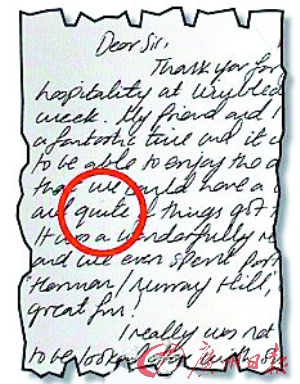 Dear Sir,
Thank you for
hospitality at
week. My friend and I
a fantastic time and it w
to be able to enjoy the
that we could have a
and quite if things got
It was a wonderfully
and we even spent part
'Henman / Murray Hill',
great fun!
I really was not
to be looked after with
广州日报